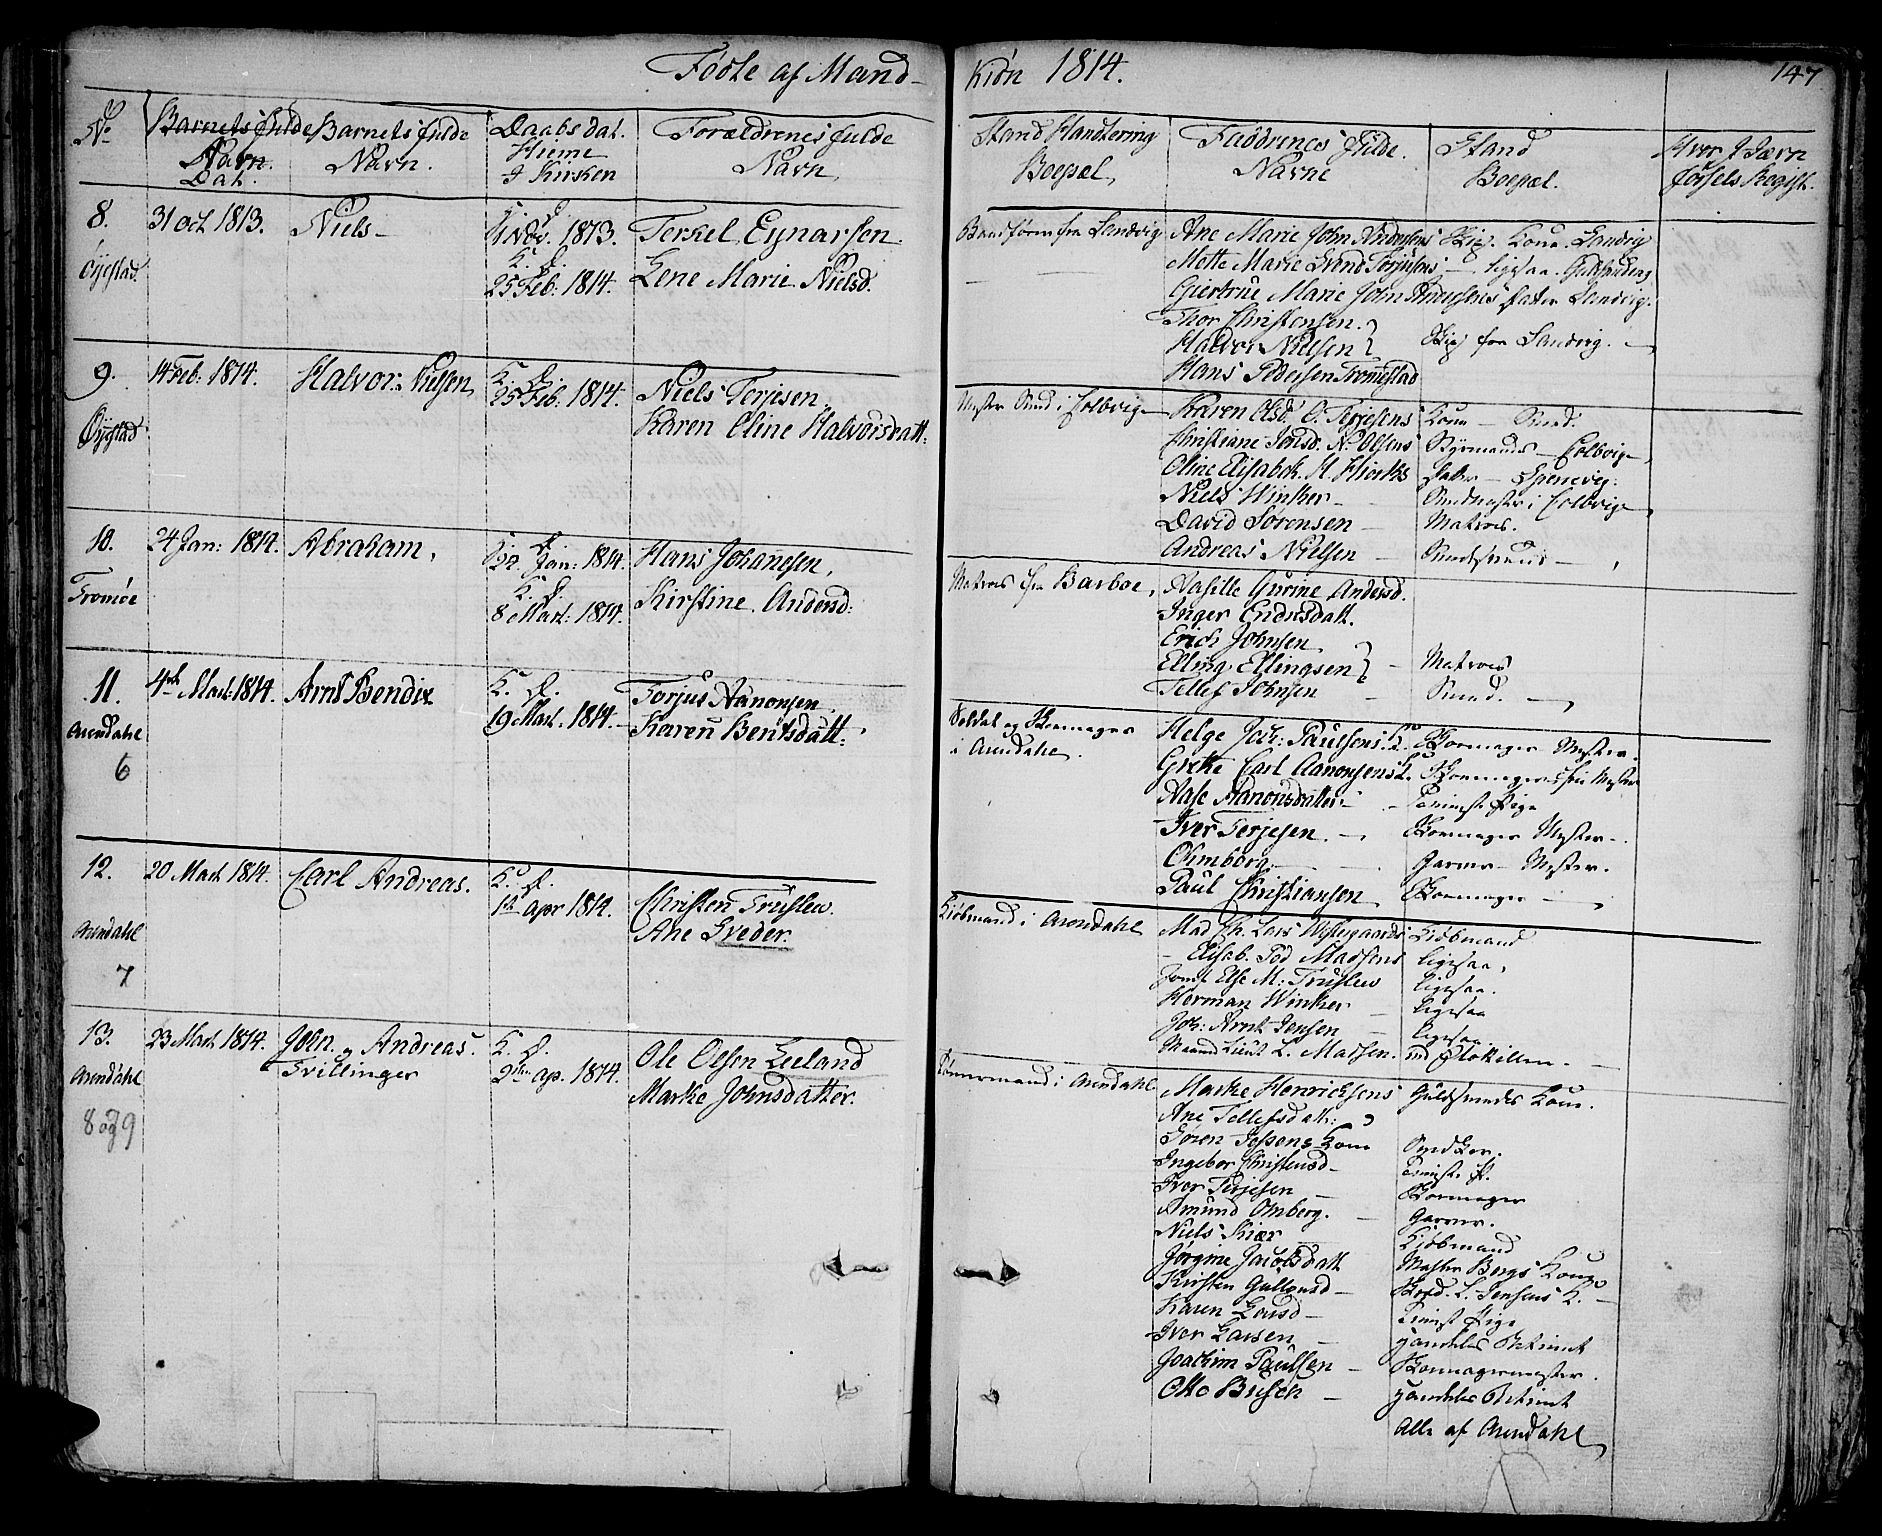 Födte af Mand-
Kiön 1814.
147
No
Barnets fulde Navn.
Dat.
Barnets fulde
Navn.
Daabs dat.
Hieme
I Kirken
Forældrenes fulde
Navn,
Stand Handtering
Boepæl,
Faddrenes fulde.
Navne
Stand
Boepæl.
8.
Öyestad
31 oct 1813.
Niels
K. D.
25 Feb: 1814.
Terkel Eynarsen
Lene Marie Nielsd.
Ane Marie John Andersens
Mette Marie Svend Torjusens
Giertrue Marie John Andersens
Thor Christensen.
Halvor Nielsen
Hans Pedersen Tromestad
Skip. Kone. Sandvig
ligesaa.
datter Sandvig.
Skip fra Sandvig.
9.
Öyestad
14 Feb: 1814.
Halvor Nielsen
K. D.
25 Feb: 1814.
Niels Terjesen.
Karen Eline Halvorsdatt:
Mester Smed i Colbvig
Karen Olsd. O. Terjesens
Christiane Jensd. N. Olsens
Oline Elisabeth. H.
Niels Winther
David Sörensen
Andreas Nielsen
Kone Smed.
Styrmands Colbvig
Datter
Smedmester i Colbvig
Matros.
Smedsvend
10.
Tromöe
24 Jan: 1814.
Abraham,
K. D.
Jan: 1814.
K. D.
8 Mart: 1814.
Hans Johanesen,
Kirstine Andersd:
Matros fra Barboe,
Aasille Gurine Andersd.
Inger Endresdatt.
Erich Johnsen
Elling Ellingsen
Tellef Johnsen
Matros
Smed.
11.
Arendahl
6
4de Mart: 1814.
Arnt Bendix
K. D.
19 Mart. 1814.
Torjus Aanonsen
Karen Bentsdatt:
Soldat og Skomager
i Arendahl.
Helge Joh: Paulsens
Grethe Carl Aanonsens
Aase Aanonsdatter
Iver Terjesen.
Olmborg.
Paul Christiansen
Skomager Mester.
Tienistepige
Skomager Mester.
Garver Mester.
Skomager
12.
Arendahl
7
20 Mart 1814.
Carl Andreas.
K. D.
1st Apr 1814.
Christen Truslew.
Ane Sveder.
Kiöbmand i Arendahl
Mad Ch. Lars Westergaards
Elisab. Pod Madsens
Jomf Else M: Truslew
Herman Winther
Joh: Arnt Jensen
Maaned Lieut L. Madsen.
Kiöbmand
ligesaa,
ligesaa.
ligesaa
ligesaa
ved Flotillen.
13.
Arendahl
8 og 9
23 Mart 1814.
John. og Andreas.
Tvillinger
K. D.
2den ap. 1814.
Ole Olsen Leeland
Marthe Johnsdatter.
Tömmermand i Arendahl
Marthe Henrichsens
Ane Tellefsdatt:
Sören Jepsens Kone
Ingebor Christensd
Iver Terjesen
Amund Omberg.
Niels Kiær
Jörgine Jacobsdatt
Kirsten Gullovsd
Karen Larsd
Iver Larsen
Joachim Paulsen
Otto Busch
Guldsmedes Kone.
Smed
Tieniste P.
Skomager
Garver.
Kiöbmand
Mester Bergs Kone
L. Jensens K.
Tienist Pige
Handels Betient
Skomagermester.
Handels Betient
Alle af Arendahl